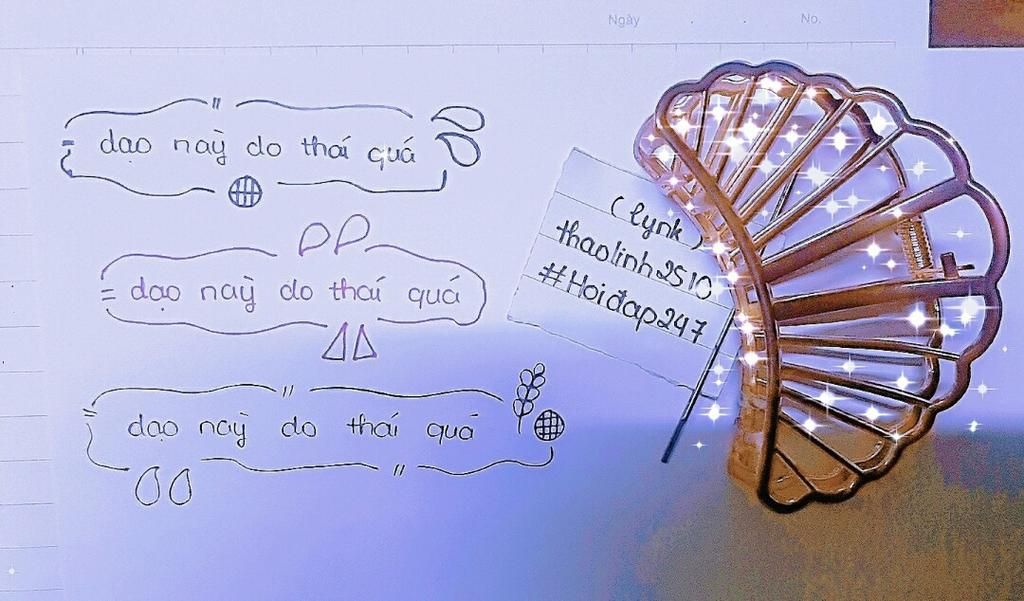 Ngày No.
dạo này do thái quá
dạo này do thái quá
dạo này do thái quá
(lynk)
thaolinh2510
#Hoiđap247